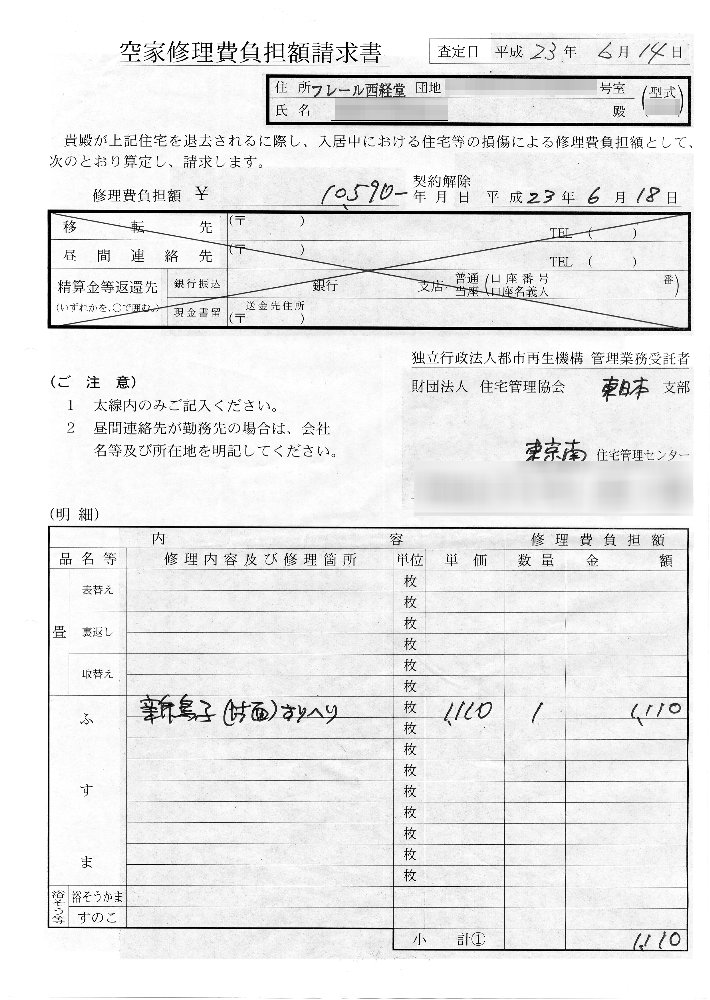 空家修理費負担額請求書
査定日 平成 23 年 6 月 14 日
住所 フレール西経堂 団地 号室 (型式)
氏名 殿
貴殿が上記住宅を退去されるに際し、入居中における住宅等の損傷による修理費負担額として、
次のとおり算定し、請求します。
修理費負担額 ¥ 10,590- 契約解除年月日 平成 23 年 6 月 18 日
移転先 (〒 ) TEL ( )
昼間連絡先 (〒 ) TEL ( )
精算金等返還先 (いずれかを、○で囲む。)
銀行振込 銀行 支店 普通 当座 (口座番号 口座名義人 番)
現金書留 送金先住所 (〒 )
独立行政法人都市再生機構 管理業務受託者
財団法人 住宅管理協会 東日本 支部
東京南 住宅管理センター
(ご注意)
1 太線内のみご記入ください。
2 昼間連絡先が勤務先の場合は、会社
名等及び所在地を明記してください。
(明細)
内容 修理費負担額
品名等 修理内容及び修理箇所 単位 単価 数量 金額
畳 表替え 枚
枚
枚
裏返し 枚
枚
取替え 枚
ふすま (片面) 枚 1,110 1 1,110
枚
枚
枚
枚
枚
枚
枚
枚
浴そう等 浴そうかま
すのこ
小計① 1,110